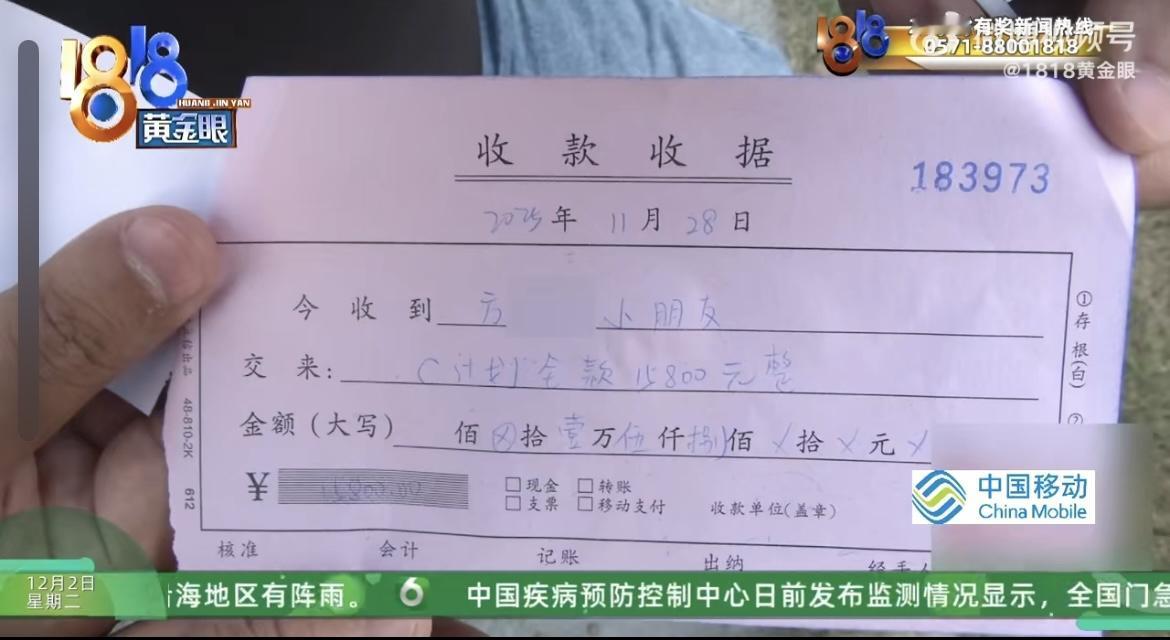 1818
HUANG JIN YAN
黄金眼
有奖新闻热线
0571-88001818
视频号
@1818黄金眼
收款收据
183973
2025年 11月 28日
今收到 方 小朋友
交来: C计划全款 15800元整
金额(大写) 佰 拾 壹万伍仟捌佰 拾 元
¥ 15800.00
□现金 □转账
□支票 □移动支付
收款单位(盖章)
①存根(白) ②
48-810-2K 612
核准 会计 记账 出纳
中国移动
China Mobile
12月2日
星期二
海地区有阵雨。 6 中国疾病预防控制中心日前发布监测情况显示，全国门急